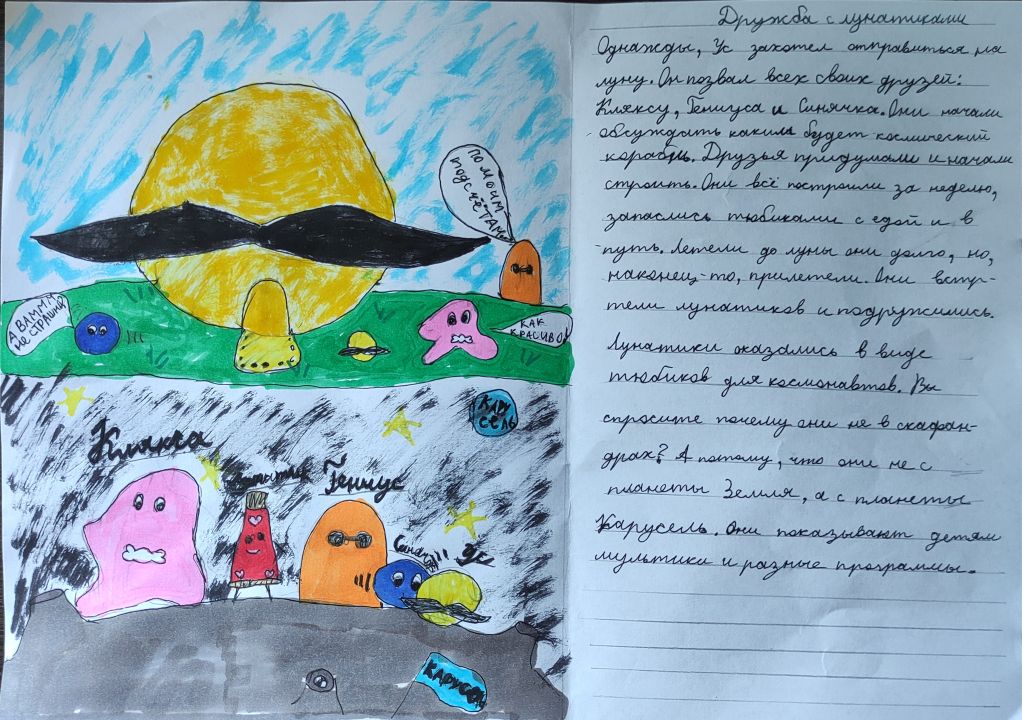 ПО МОИМ
ПОДСЧЁТАМ
А ВАММ
НЕ СТРАШНО?
КАК
КРАСИВО!
КАРУ
СЕЛЬ
Клякса
Гениус
Ус
КАРУСЕЛЬ
Дружба с лунатиками
Однажды, Ус захотел отправиться на
луну. Он позвал всех своих друзей:
Кляксу, Гениуса и Синячка. Они начали
обсуждать каким будет космический
корабль. Друзья придумали и начали
строить. Они всё построили за неделю,
запаслись тюбиками с едой и в
путь. Летели до луны они долго, но,
наконец-то, прилетели. Они встре-
тели лунатиков и подружились.
Лунатики оказались в виде
тюбиков для космонавтов. Вы
спросите почему они не в скафан-
драх? А потому, что они не с
планеты Земля, а с планеты
Карусель. Они показывают детям
мультики и разные программы.